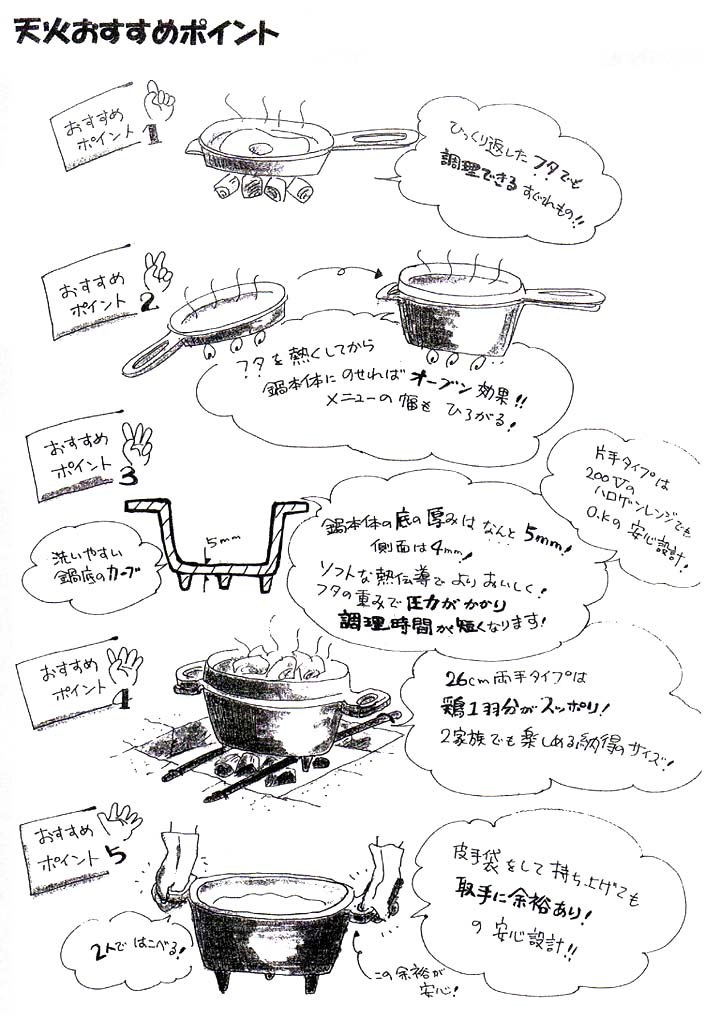 天火おすすめポイント
おすすめ
ポイント 1
ひっくり返した フタでも
調理できる すぐれもの!!
おすすめ
ポイント 2
フタを熱くしてから
鍋本体に のせれば オーブン効果!!
メニューの幅も ひろがる!
おすすめ
ポイント 3
片手タイプは
200Vの
ハロゲンレンジでも
O.Kの 安心設計!
5mm
洗いやすい
鍋底のカーブ
鍋本体の底の厚みは なんと 5mm!
側面は4mm!
ソフトな熱伝導で よりおいしく!
フタの重みで圧力がかかり
調理時間が短くなります!
おすすめ
ポイント 4
26cm両手タイプは
鶏1羽分がスッポリ!
2家族でも楽しめる納得のサイズ!
おすすめ
ポイント 5
皮手袋をして持ち上げても
取手に余裕あり!
の安心設計!!
2人で はこべる!
この余裕が
安心!